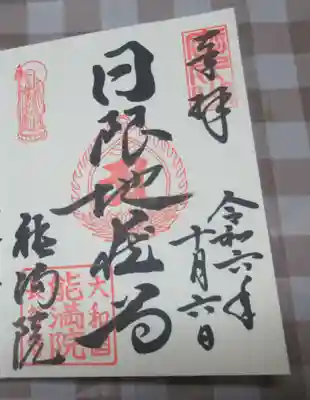 奉拝
令和六年
十月六日
日限地蔵尊
能満院
大和国
能満院